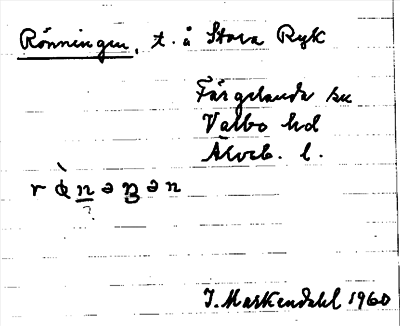 Rönningen, t. å Stora Ryk
Färgelanda sn
Valbo hd
Älvsb. l.
?
I. Markendahl 1960